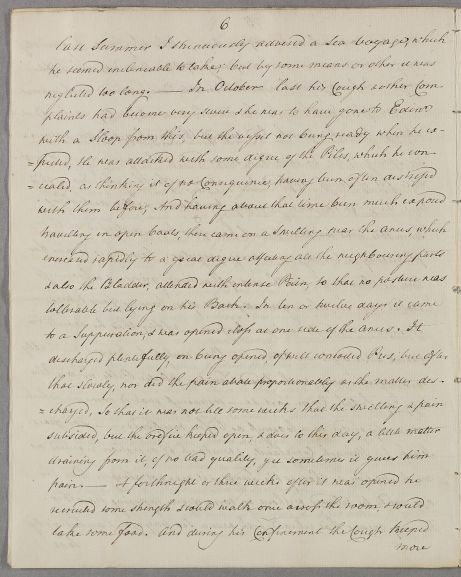 6
last Summer I strenuously advised a Sea Voyage, which
he seemed inclineable to take; but by some means or other it was
neglected too long. — In October last his Cough & other Com-
plaints had become very severe & he was to have gone to Edinr
with a Sloop from this, but the vessel not being ready when he ex-
=pected, He was attacked with some degree of the Piles, which he con-
=cealed, as thinking it of no Consequence, having been often
with them before; And having about that time been much exposed
travelling in open boats, there came on a Swelling near the anus, which
encreased rapidly to a great degree affecting all the neighbouring parts
& also the Bladder, attended with intense Pain, so that no posture was
tollerable but lying on his Back. In ten or twelve days it came
to a Suppuration, & was opened close at one side of the anus. It
discharged plentifully on being opened, of well concocted Pus, but after
that slowly, nor did the pain abate proportionately as the matter dis-
=charged, So that it was not till some weeks that the swelling & pain
subsided, but the orifice keeped open, & does to this day, a little matter
draining from it, of no bad quality, yet sometimes it gives him
pain. — A forthnight or three weeks after it was opened he
recruited some strength & could walk one across the room, & could
take some food. And during his Confinement the Cough keeped
more